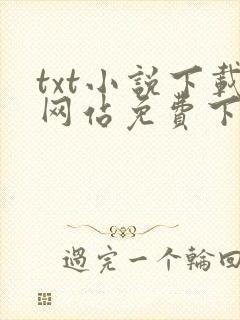 txt小説下載
网佔免費下
過完一个輪回